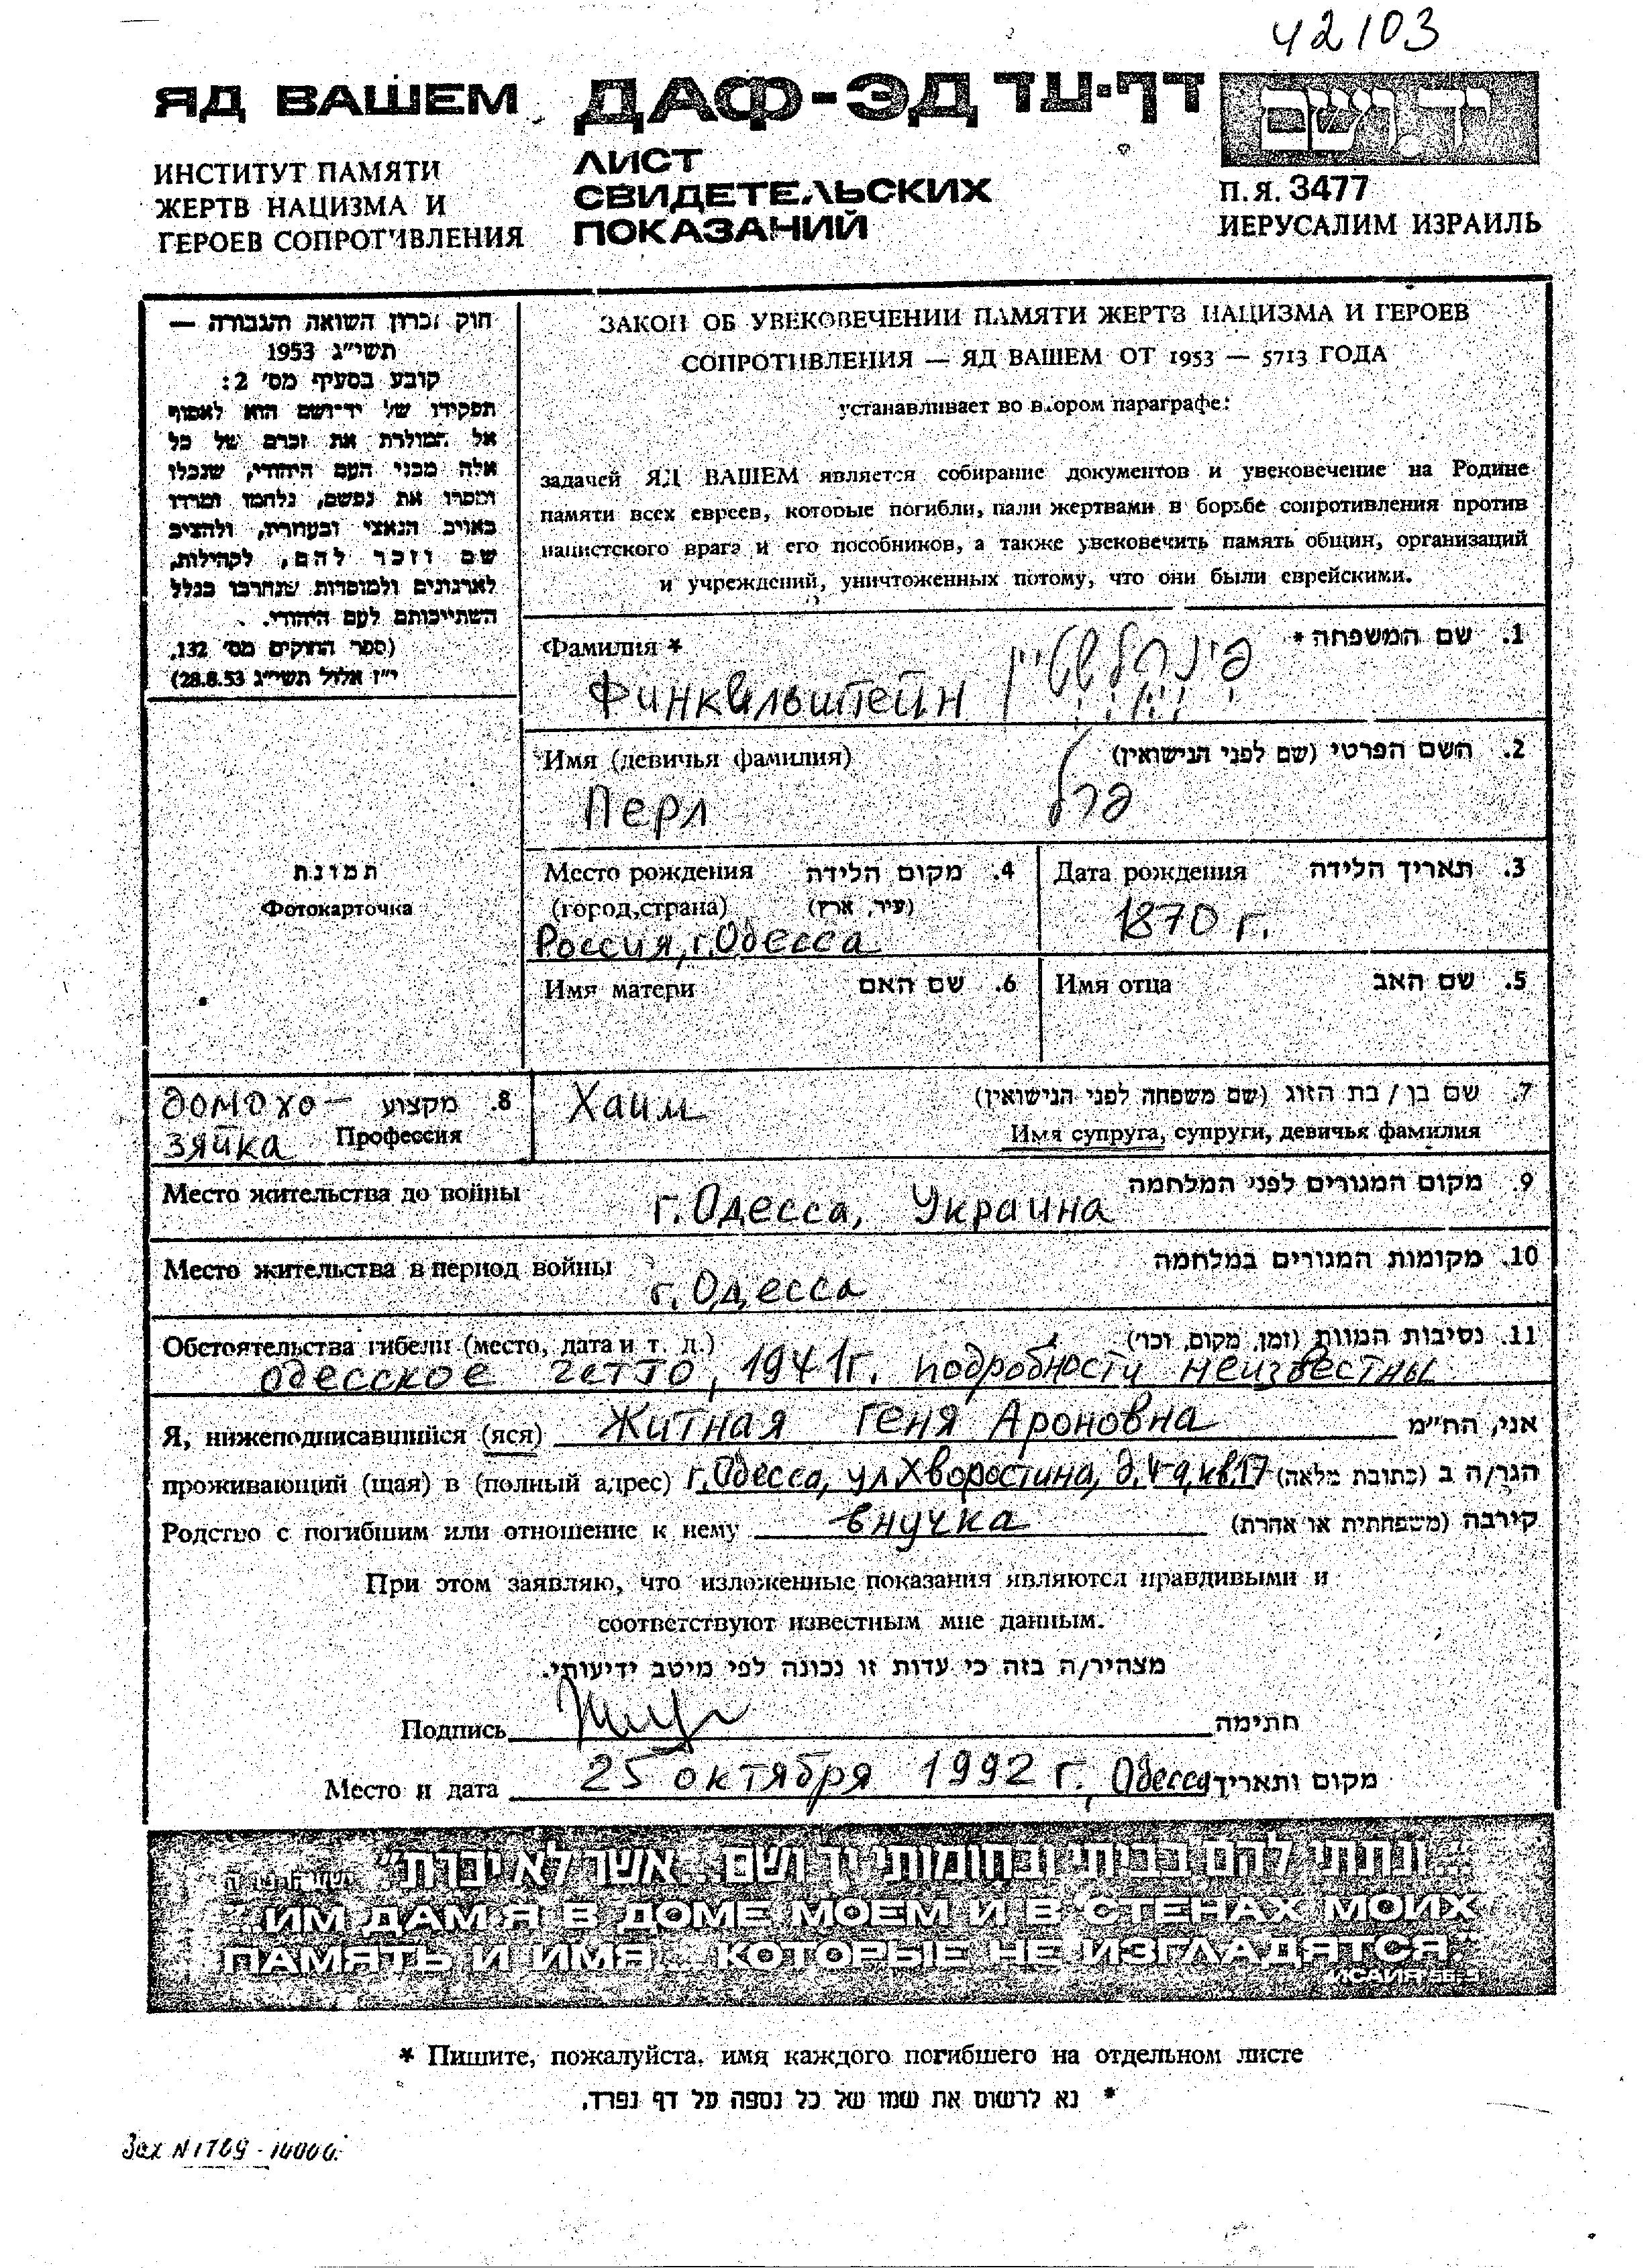 42103
ЯД ВАШЕМ
ДАФ-ЭД דף-עד
יד ושם
ИНСТИТУТ ПАМЯТИ
ЖЕРТВ НАЦИЗМА И
ГЕРОЕВ СОПРОТИВЛЕНИЯ
ЛИСТ
СВИДЕТЕЛЬСКИХ
ПОКАЗАНИЙ
П.Я. 3477
ИЕРУСАЛИМ ИЗРАИЛЬ
חוק זכרון השואה והגבורה —
תשי״ג 1953
קובע בסעיף מס׳ 2:
תפקידו של יד־ושם הוא לאסוף
אל המולדת את זכרם של כל
אלה מבני העם היהודי, שנפלו
ומסרו את נפשם, נלחמו ומרדו
באויב הנאצי ובעוזריו, ולהציב
שם וזכר להם, לקהילות,
לארגונים ולמוסדות שנחרבו בגלל
השתייכותם לעם היהודי.
(ספר החוקים מס׳ 132,
י״ז אלול תשי״ג 28.8.53)
ЗАКОН ОБ УВЕКОВЕЧЕНИИ ПАМЯТИ ЖЕРТВ НАЦИЗМА И ГЕРОЕВ
СОПРОТИВЛЕНИЯ — ЯД ВАШЕМ ОТ 1953 — 5713 ГОДА
устанавливает во втором параграфе:
задачей ЯД ВАШЕМ является собирание документов и увековечение на Родине
памяти всех евреев, которые погибли, пали жертвами в борьбе сопротивления против
нацистского врага и его пособников, а также увековечить память общин, организаций
и учреждений, уничтоженных потому, что они были еврейскими.
Фамилия * 1. שם המשפחה *
Финкельштейн פינקלשטיין
Имя (девичья фамилия) 2. השם הפרטי (שם לפני הנישואין)
Перл פרל
תמונה
Фотокарточка
Место рождения 4. מקום הלידה
(город,страна) (עיר, ארץ)
Россия, г.Одесса
Дата рождения 3. תאריך הלידה
1870 г.
Имя матери 6. שם האם
Имя отца 5. שם האב
домохо- 8. מקצוע
зяйка Профессия
Хаим 7. שם בן / בת הזוג (שם משפחה לפני הנישואין)
Имя супруга, супруги, девичья фамилия
Место жительства до войны 9. מקום המגורים לפני המלחמה
г. Одесса, Украина
Место жительства в период войны 10. מקומות המגורים במלחמה
г. Одесса
Обстоятельства гибели (место, дата и т. д.) 11. נסיבות המוות (זמן, מקום, וכו׳)
одесское гетто, 1941г. подробности неизвестны
Я, нижеподписавшийся (яся) Житная Геня Ароновна אני, הח״מ
проживающий (щая) в (полный адрес) г.Одесса, ул Хворостина, д.49, кв.17 הגר/ה ב (כתובת מלאה)
Родство с погибшим или отношение к нему внучка קירבה (משפחתית או אחרת)
При этом заявляю, что изложенные показания являются правдивыми и
соответствуют известным мне данным.
מצהיר/ה בזה כי עדות זו נכונה לפי מיטב ידיעותי.
Подпись חתימה
Место и дата 25 октября 1992 г. Одесса מקום ותאריך
״...ונתתי להם בביתי ובחומותי יד ושם...אשר לא יכרת״
"...ИМ ДАМ Я В ДОМЕ МОЕМ И В СТЕНАХ МОИХ
ПАМЯТЬ И ИМЯ... КОТОРЫЕ НЕ ИЗГЛАДЯТСЯ."
ИСАИЯ 56:5
* Пишите, пожалуйста, имя каждого погибшего на отдельном листе
* נא לרשום את שמו של כל נספה על דף נפרד.
Зак N 1769 - 10000